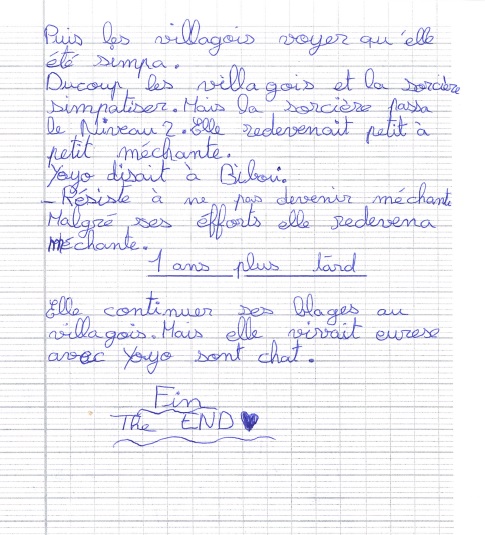 Puis les villagois voyer qu'elle
été simpa.
Ducoup les villagois et la sorcière
simpatiser. Mais la sorcière passa
le Niveau 2. Elle redevenait petit à
petit méchante.
Yoyo disait à Bibou.
- Résiste à ne pas devenir méchante
Malgré ses éfforts elle redevena
méchante.
1 ans plus tard
Elle continuer ses blages au
villagois. Mais elle vivait eurese
avec Yoyo sont chat.
Fin
The END